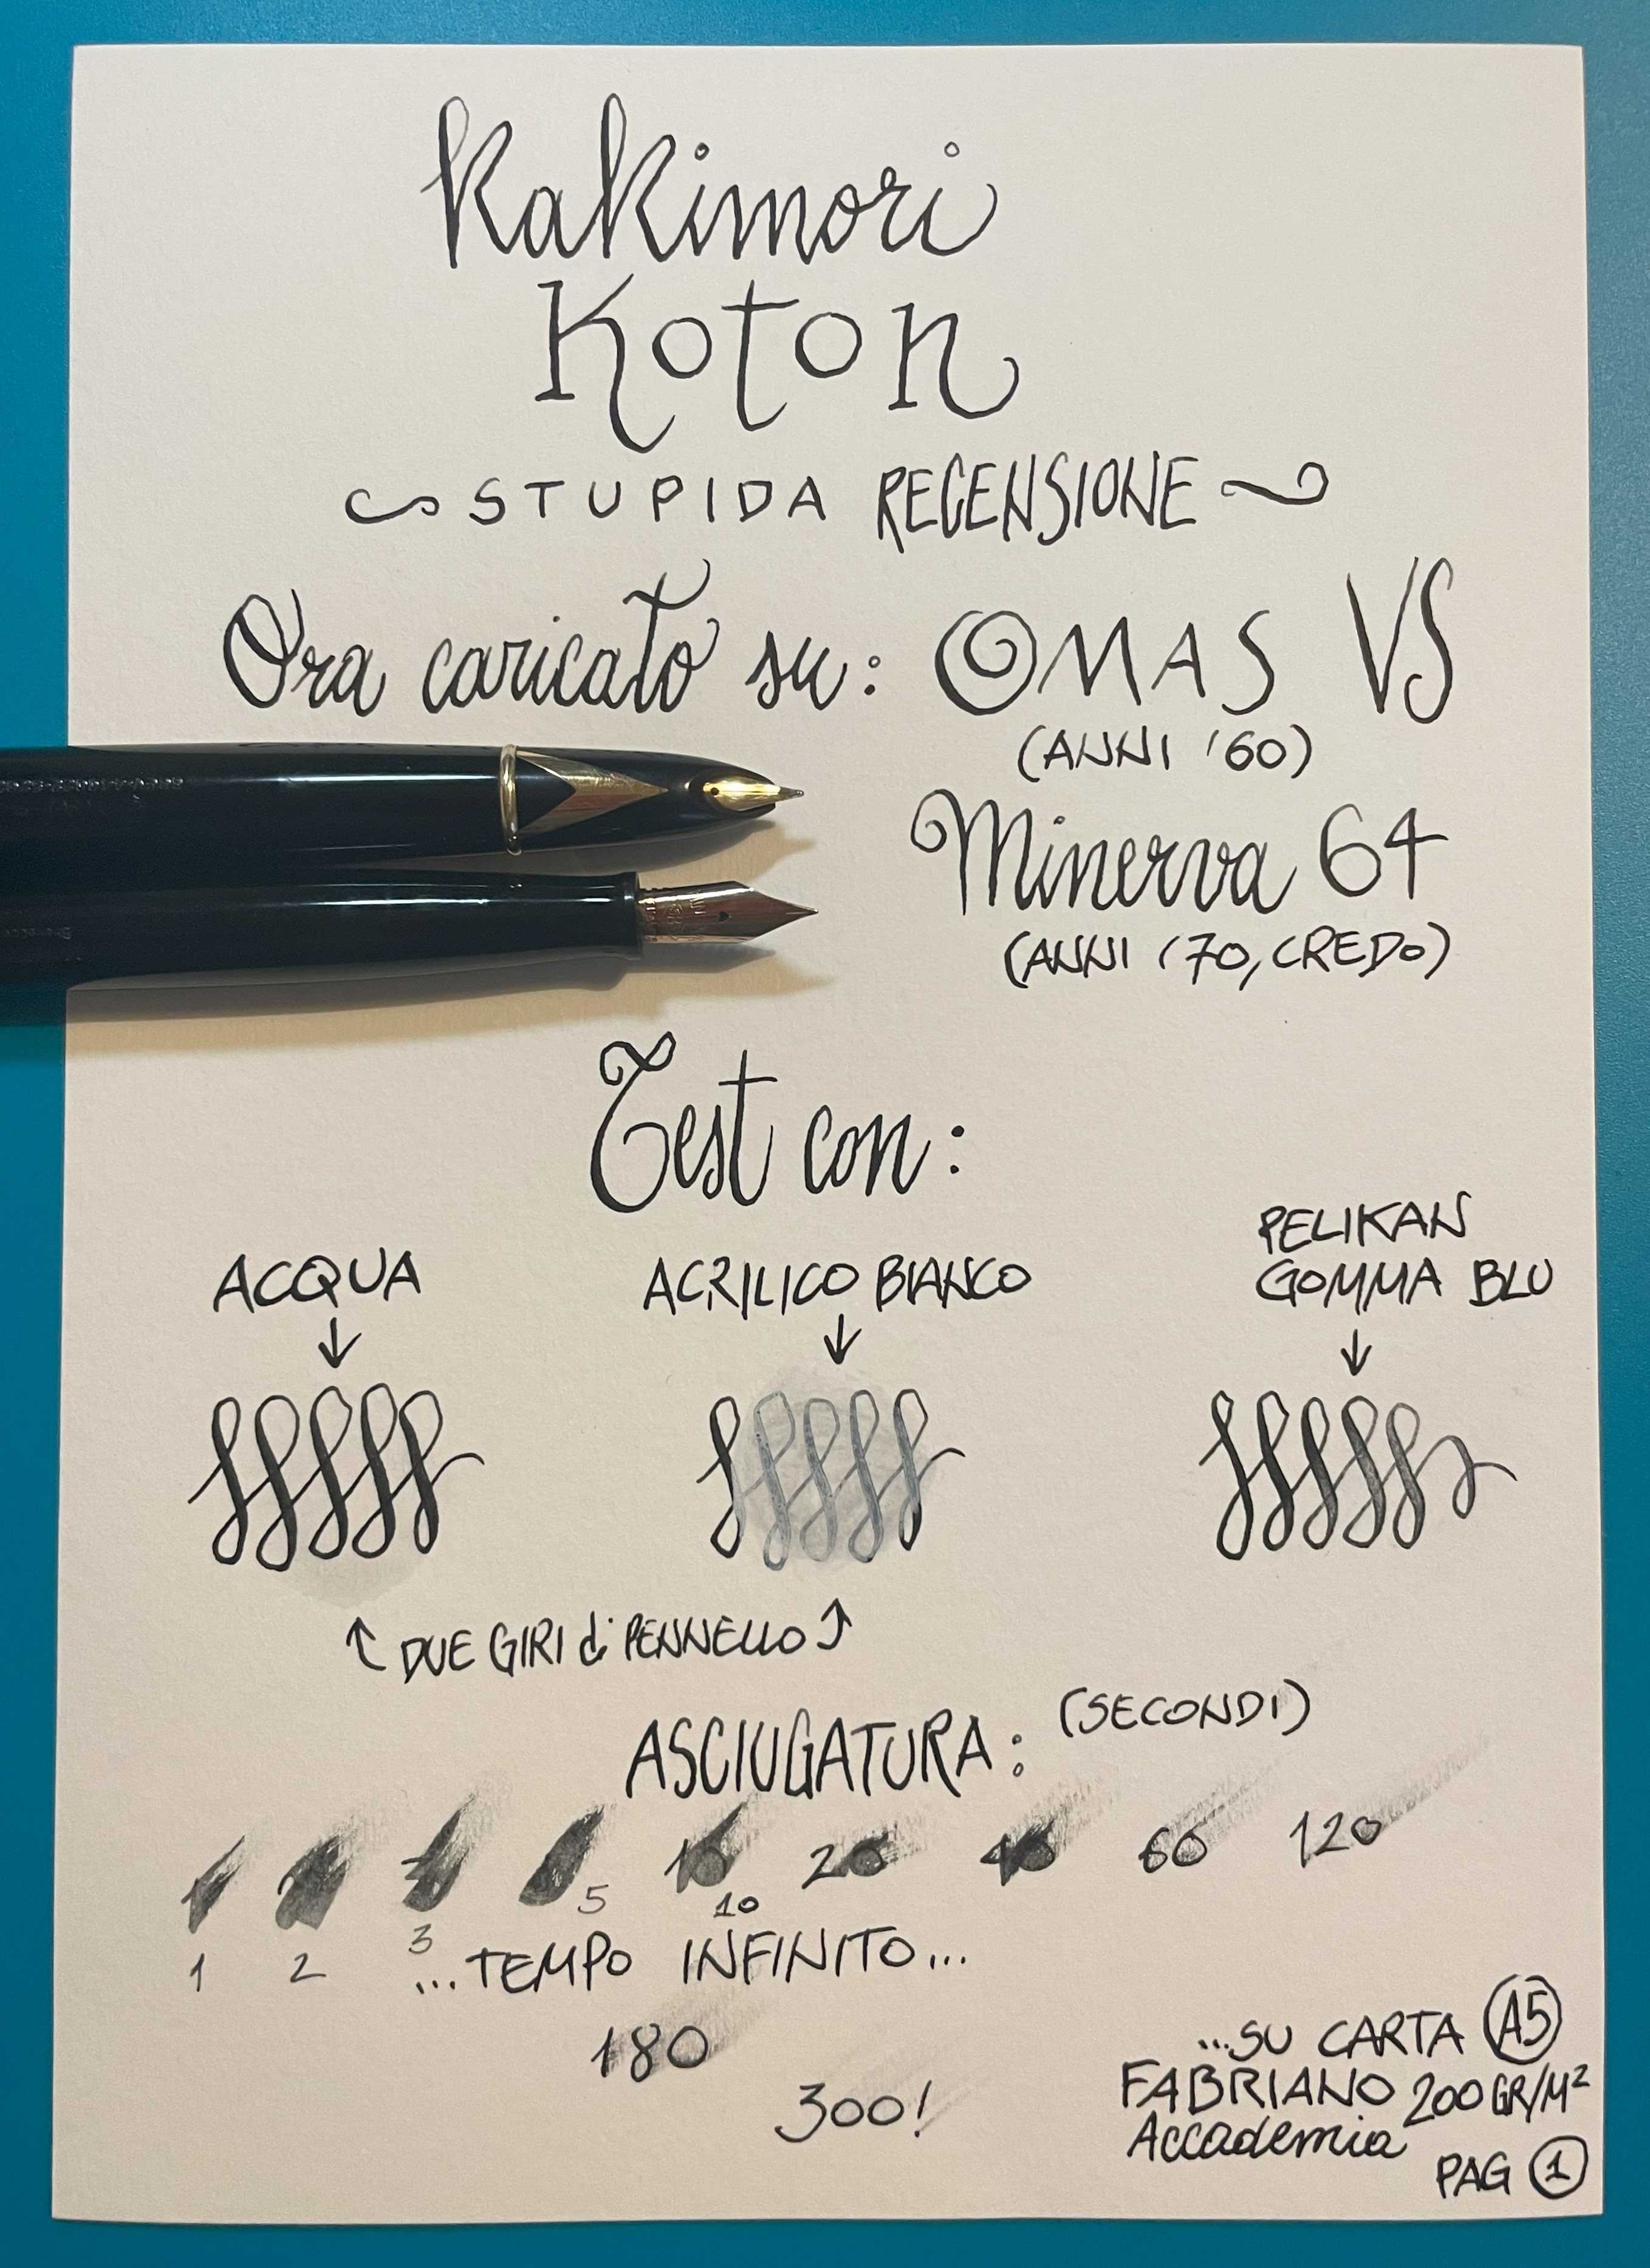 Kakimori
Koton
STUPIDA RECENSIONE
Ora caricato su: OMAS VS
(ANNI '60)
Minerva 64
(ANNI '70, CREDO)
Test con:
ACQUA
ACRILICO BIANCO
PELIKAN
GOMMA BLU
↓ ↓ ↓
DUE GIRI di PENNELLO
ASCIUGATURA: (SECONDI)
10 20 40 60 120
1 2 3 5 10
...TEMPO INFINITO...
180
300!
...SU CARTA A5
FABRIANO 200 GR/M²
Accademia
PAG 1